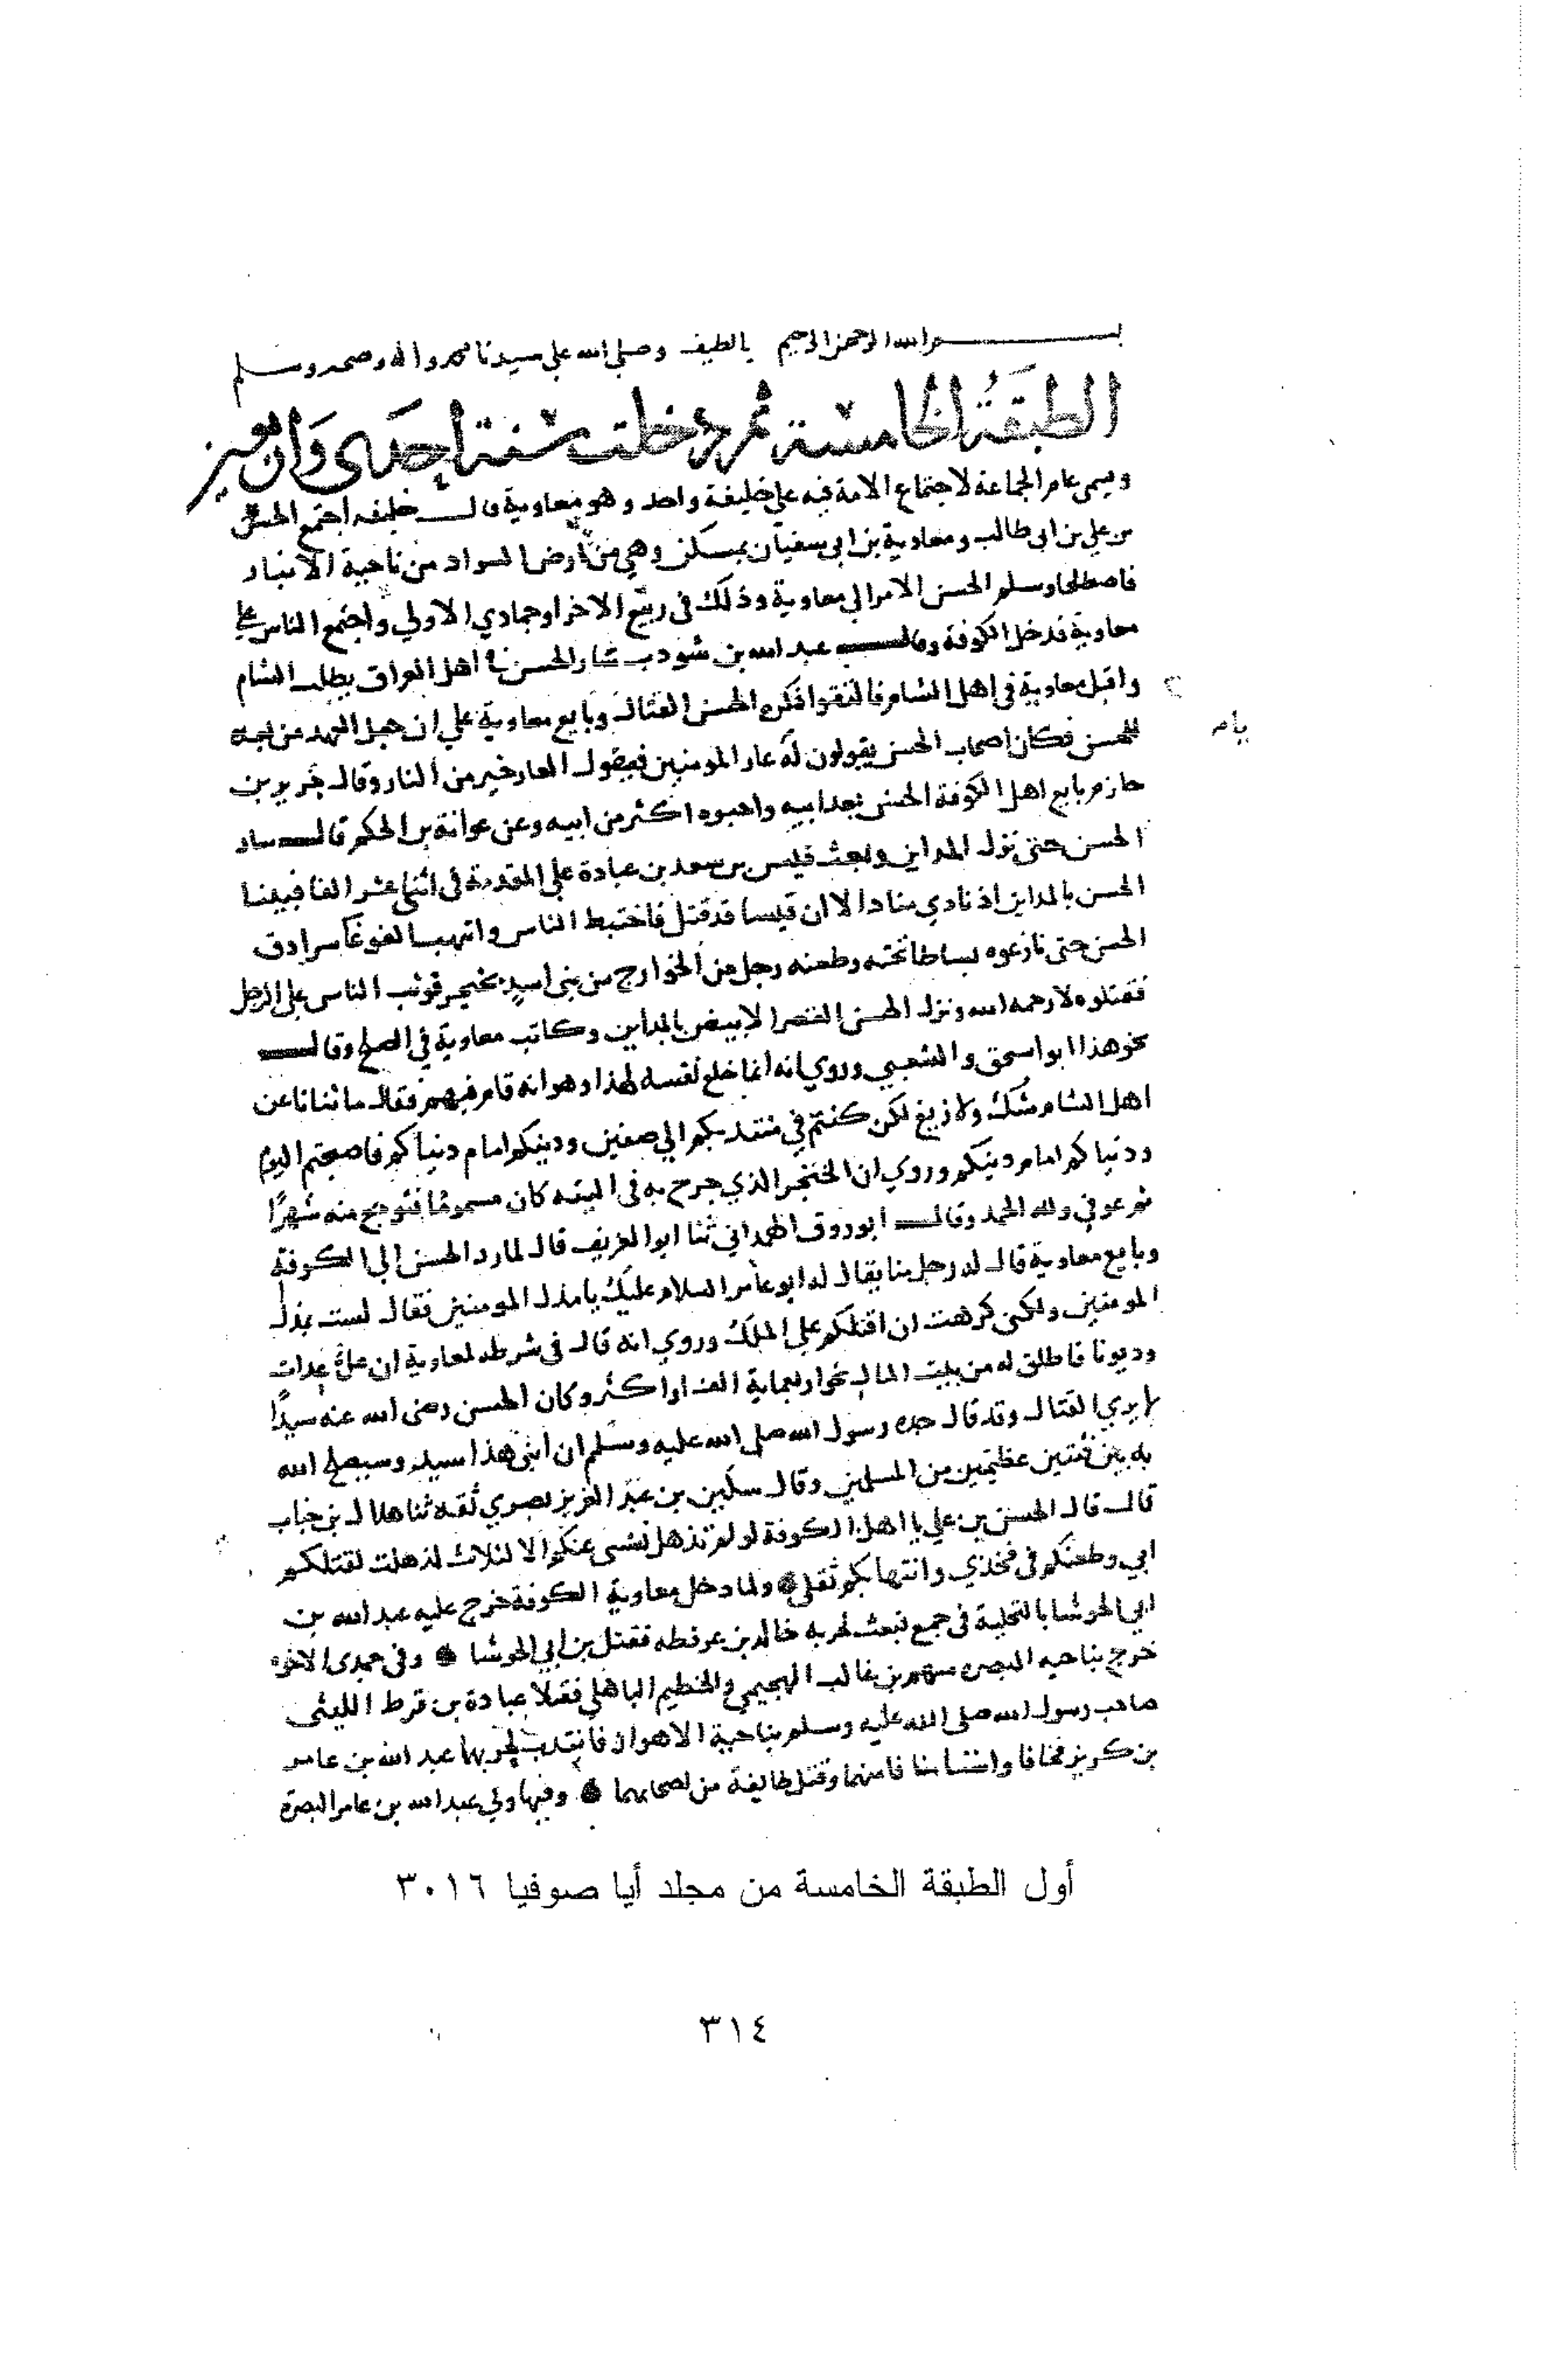 بسم الله الرحمن الرحيم يا لطيف وصلى الله علي سيدنا محمد واله وصحبه وسلم
الطبقة الخامسة ثم دخلت سنة احدى واربعين
ويسمى عام الجماعة لاجتماع الامة فيه علي خليفة واحد وهو معاوية قال خليفه اجتمع الحسن
بن علي بن ابي طالب ومعاوية بن ابي سفيان بمسكن وهي من ارض السواد من ناحية الانبار
فاصطلحا وسلم الحسن الامر الي معاوية وذلك في ربيع الاخر او جمادي الاولي واجتمع الناس علي
معاوية فدخل الكوفة وقال عبد الله بن شودب سار الحسن في اهل العراق يطلب الشام
واقبل معاوية في اهل الشام فالتقوا فكره الحسن القتال وبايع معاوية علي ان جعل العهد من بعده
للحسن فكان اصحاب الحسن يقولون له عار المومنين فيقول العار خير من النار وقال جرير بن
حازم بايع اهل الكوفة الحسن بعد ابيه واحبوه اكثر من ابيه وعن عوانة بن الحكم قال سار
الحسن حتى نزل المداين وبعث قيس بن سعد بن عبادة علي المقدمة في اثني عشر الفا فبينا
الحسن بالمداين اذ نادي مناد الا ان قيسا قد قتل فاختبط الناس وانتهب الغوغا سرادق
الحسن حتى نازعوه بساطا تحته وطعنه رجل من الخوارج من بني اسد بخنجر فوثب الناس على الرجل
فقتلوه لا رحمه الله ونزل الحسن القصر الابيض بالمداين وكاتب معاوية في الصلح وقال
نحو هذا ابو اسحق والشعبي وروي انه انما خلع نفسه لهذا وهو انه قام فيهم فقال ما ثنانا عن
اهل الشام شك ولا زيغ لكن كنتم في منتدبكم الي صفين ودينكم امام دنياكم فاصبحتم اليوم
ودنياكم امام دينكم وروي ان الخنجر الذي جرح به في اليته كان مسموما فتوجع منه شهرا
ثم عوفي ولله الحمد وقال ابو روق الهمداني ثنا ابو الغريف قال لما رد الحسن الي الكوفة
وبايع معاوية قال له رجل منا يقال له ابو عامر السلام عليك يا مذل المومنين فقال لست بمذل
المومنين ولكني كرهت ان اقتلكم علي الملك وروي انه قال في شرطه لمعاوية ان عليّ عدات
وديونا فاطلق له من بيت المال نحو اربعماية الف او اكثر وكان الحسن رضى الله عنه سيدا
لا يري القتال وقد قال جده رسول الله صلى الله عليه وسلم ان ابني هذا سيد وسيصلح الله
به بين فئتين عظيمتين من المسلمين وقال سكين بن عبد العزيز بصري ثقه ثنا هلال بن خباب
قال قال الحسن بن علي يا اهل الكوفة لو لم تذهل نفسى عنكم الا لثلاث لذهلت لقتلكم
ابي وطعنكم في فخذي وانتهابكم ثقلي ولما دخل معاوية الكوفة خرج عليه عبد الله بن
ابي الحوسا بالنخلية في جمع فبعث لحربه خالد بن عرفطه فقتل بن ابي الحوسا وفي جمدى الاخره
خرج بناحيه البصره سهم بن غالب الهجيمي والخطيم الباهلي فقتلا عبادة بن قرط الليثي
صاحب رسول الله صلى الله عليه وسلم بناحية الاهواز فانتدب لحربهما عبد الله بن عامر
بن كريز فخافا واستامنا فامنهما وقتل طايفة من اصحابهما وفيها ولي عبد الله بن عامر البصرة
أول الطبقة الخامسة من مجلد أيا صوفيا ٣٠١٦
٣١٤